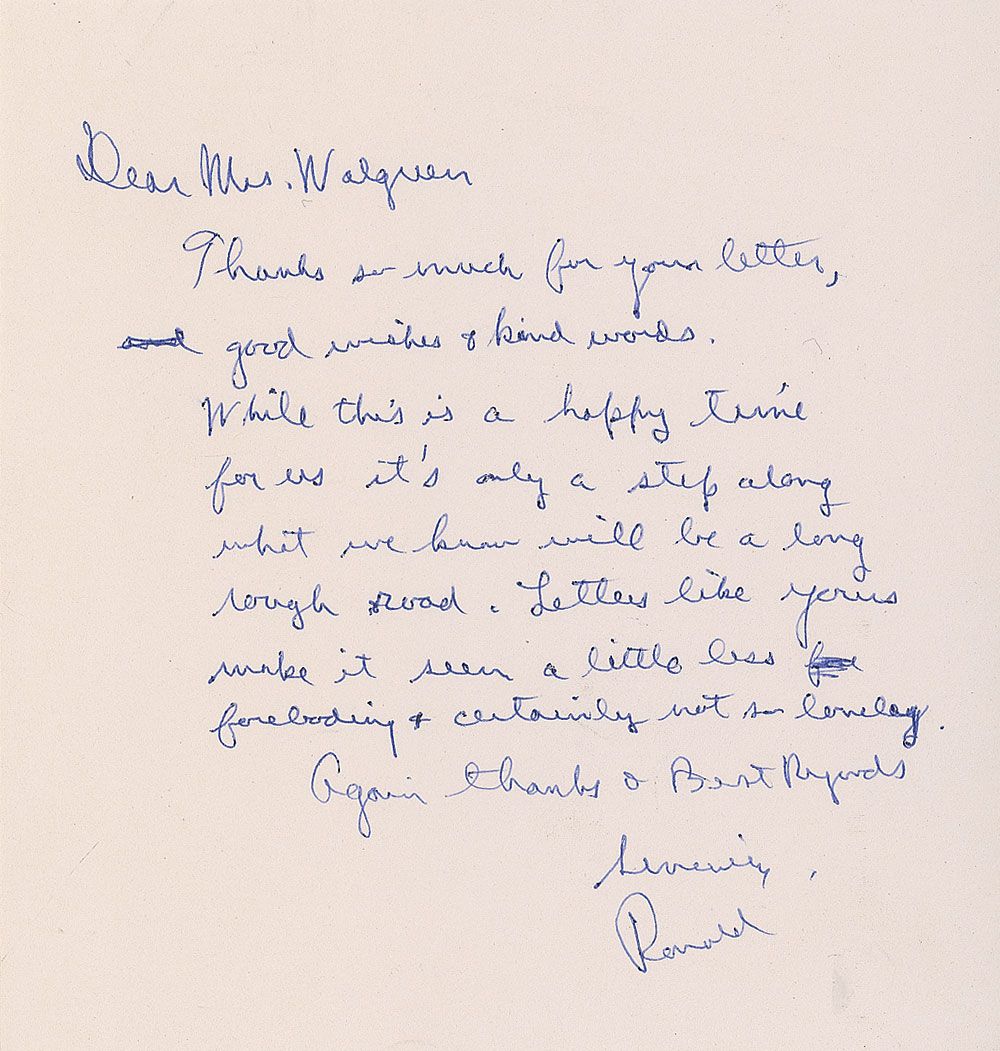 Dear Mrs. Walgreen
Thanks so much for your letter,
and good wishes & kind words.
While this is a happy time
for us it's only a step along
what we know will be a long
rough road. Letters like yours
make it seem a little less
foreboding & certainly not so lonely.
Again thanks & Best Regards
Sincerely,
Ronald